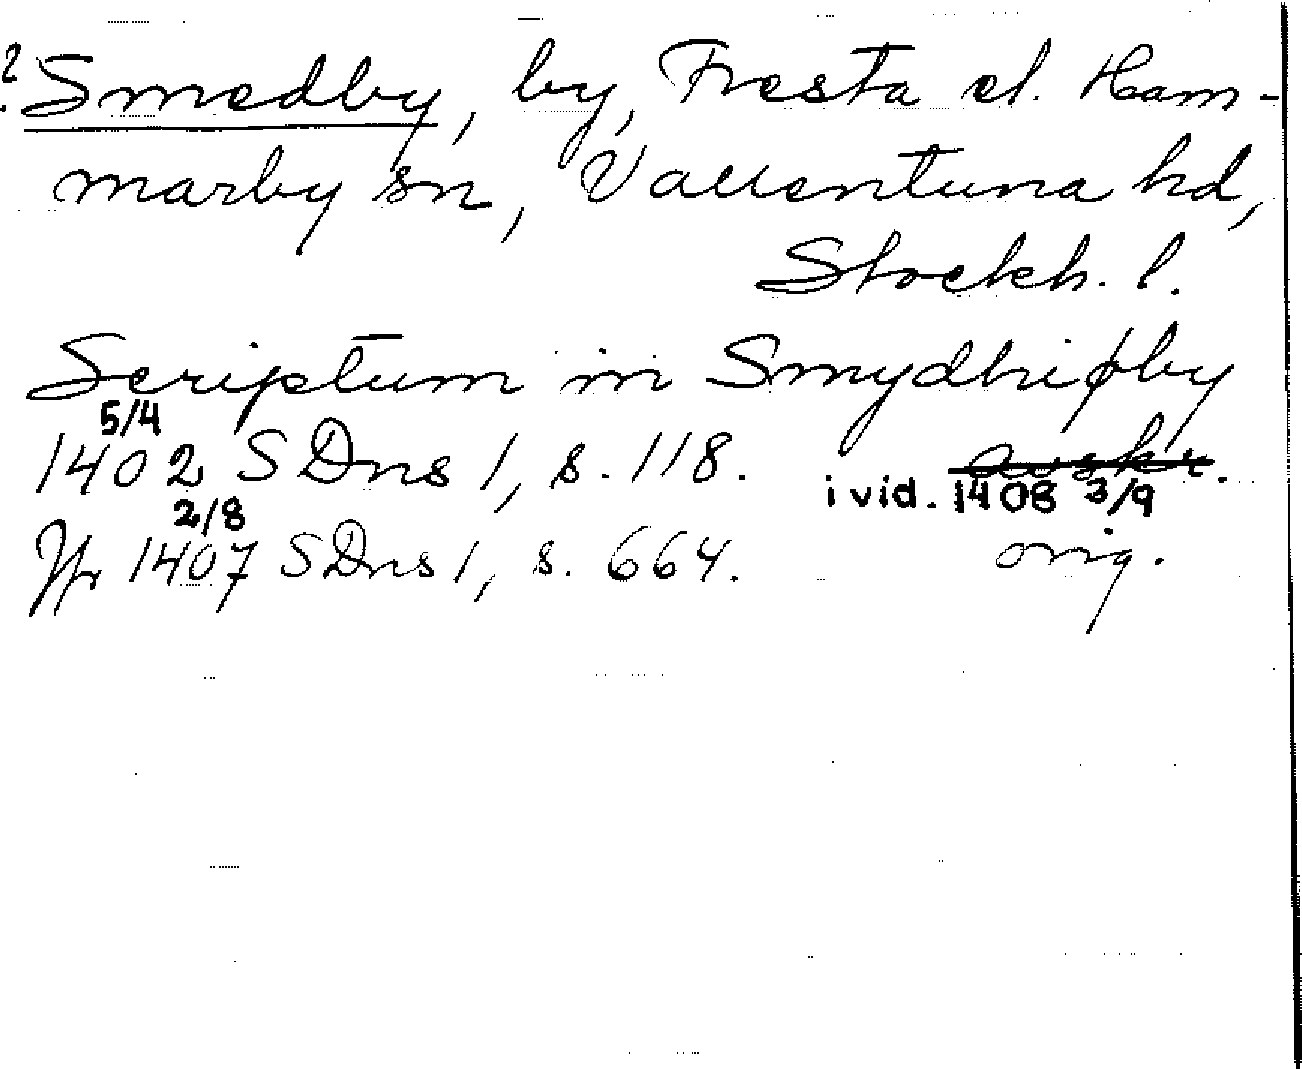 ? Smedby, by, Fresta el. Ham-
marby sn, Vallentuna hd,
Stockh. l.
Scriptum in Smydhiþby
5/4
1402 SDns 1, s. 118. avskr.
i vid. 1408 3/9
2/8
Jfr 1407 SDns 1, s. 664. orig.